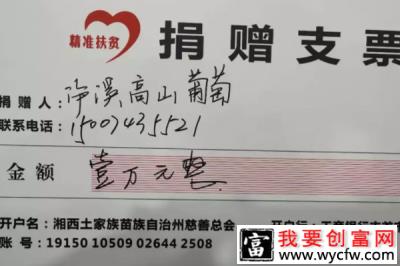 精准扶贫
捐赠支票
捐赠人:泸溪高山葡萄
联系电话:15007435521
金额 壹万元整
开户名:湘西土家族苗族自治州慈善总会 开户行:工商银行吉首
账号:19150 10509 02644 2508
富 我要创富网
www.wycfw.com